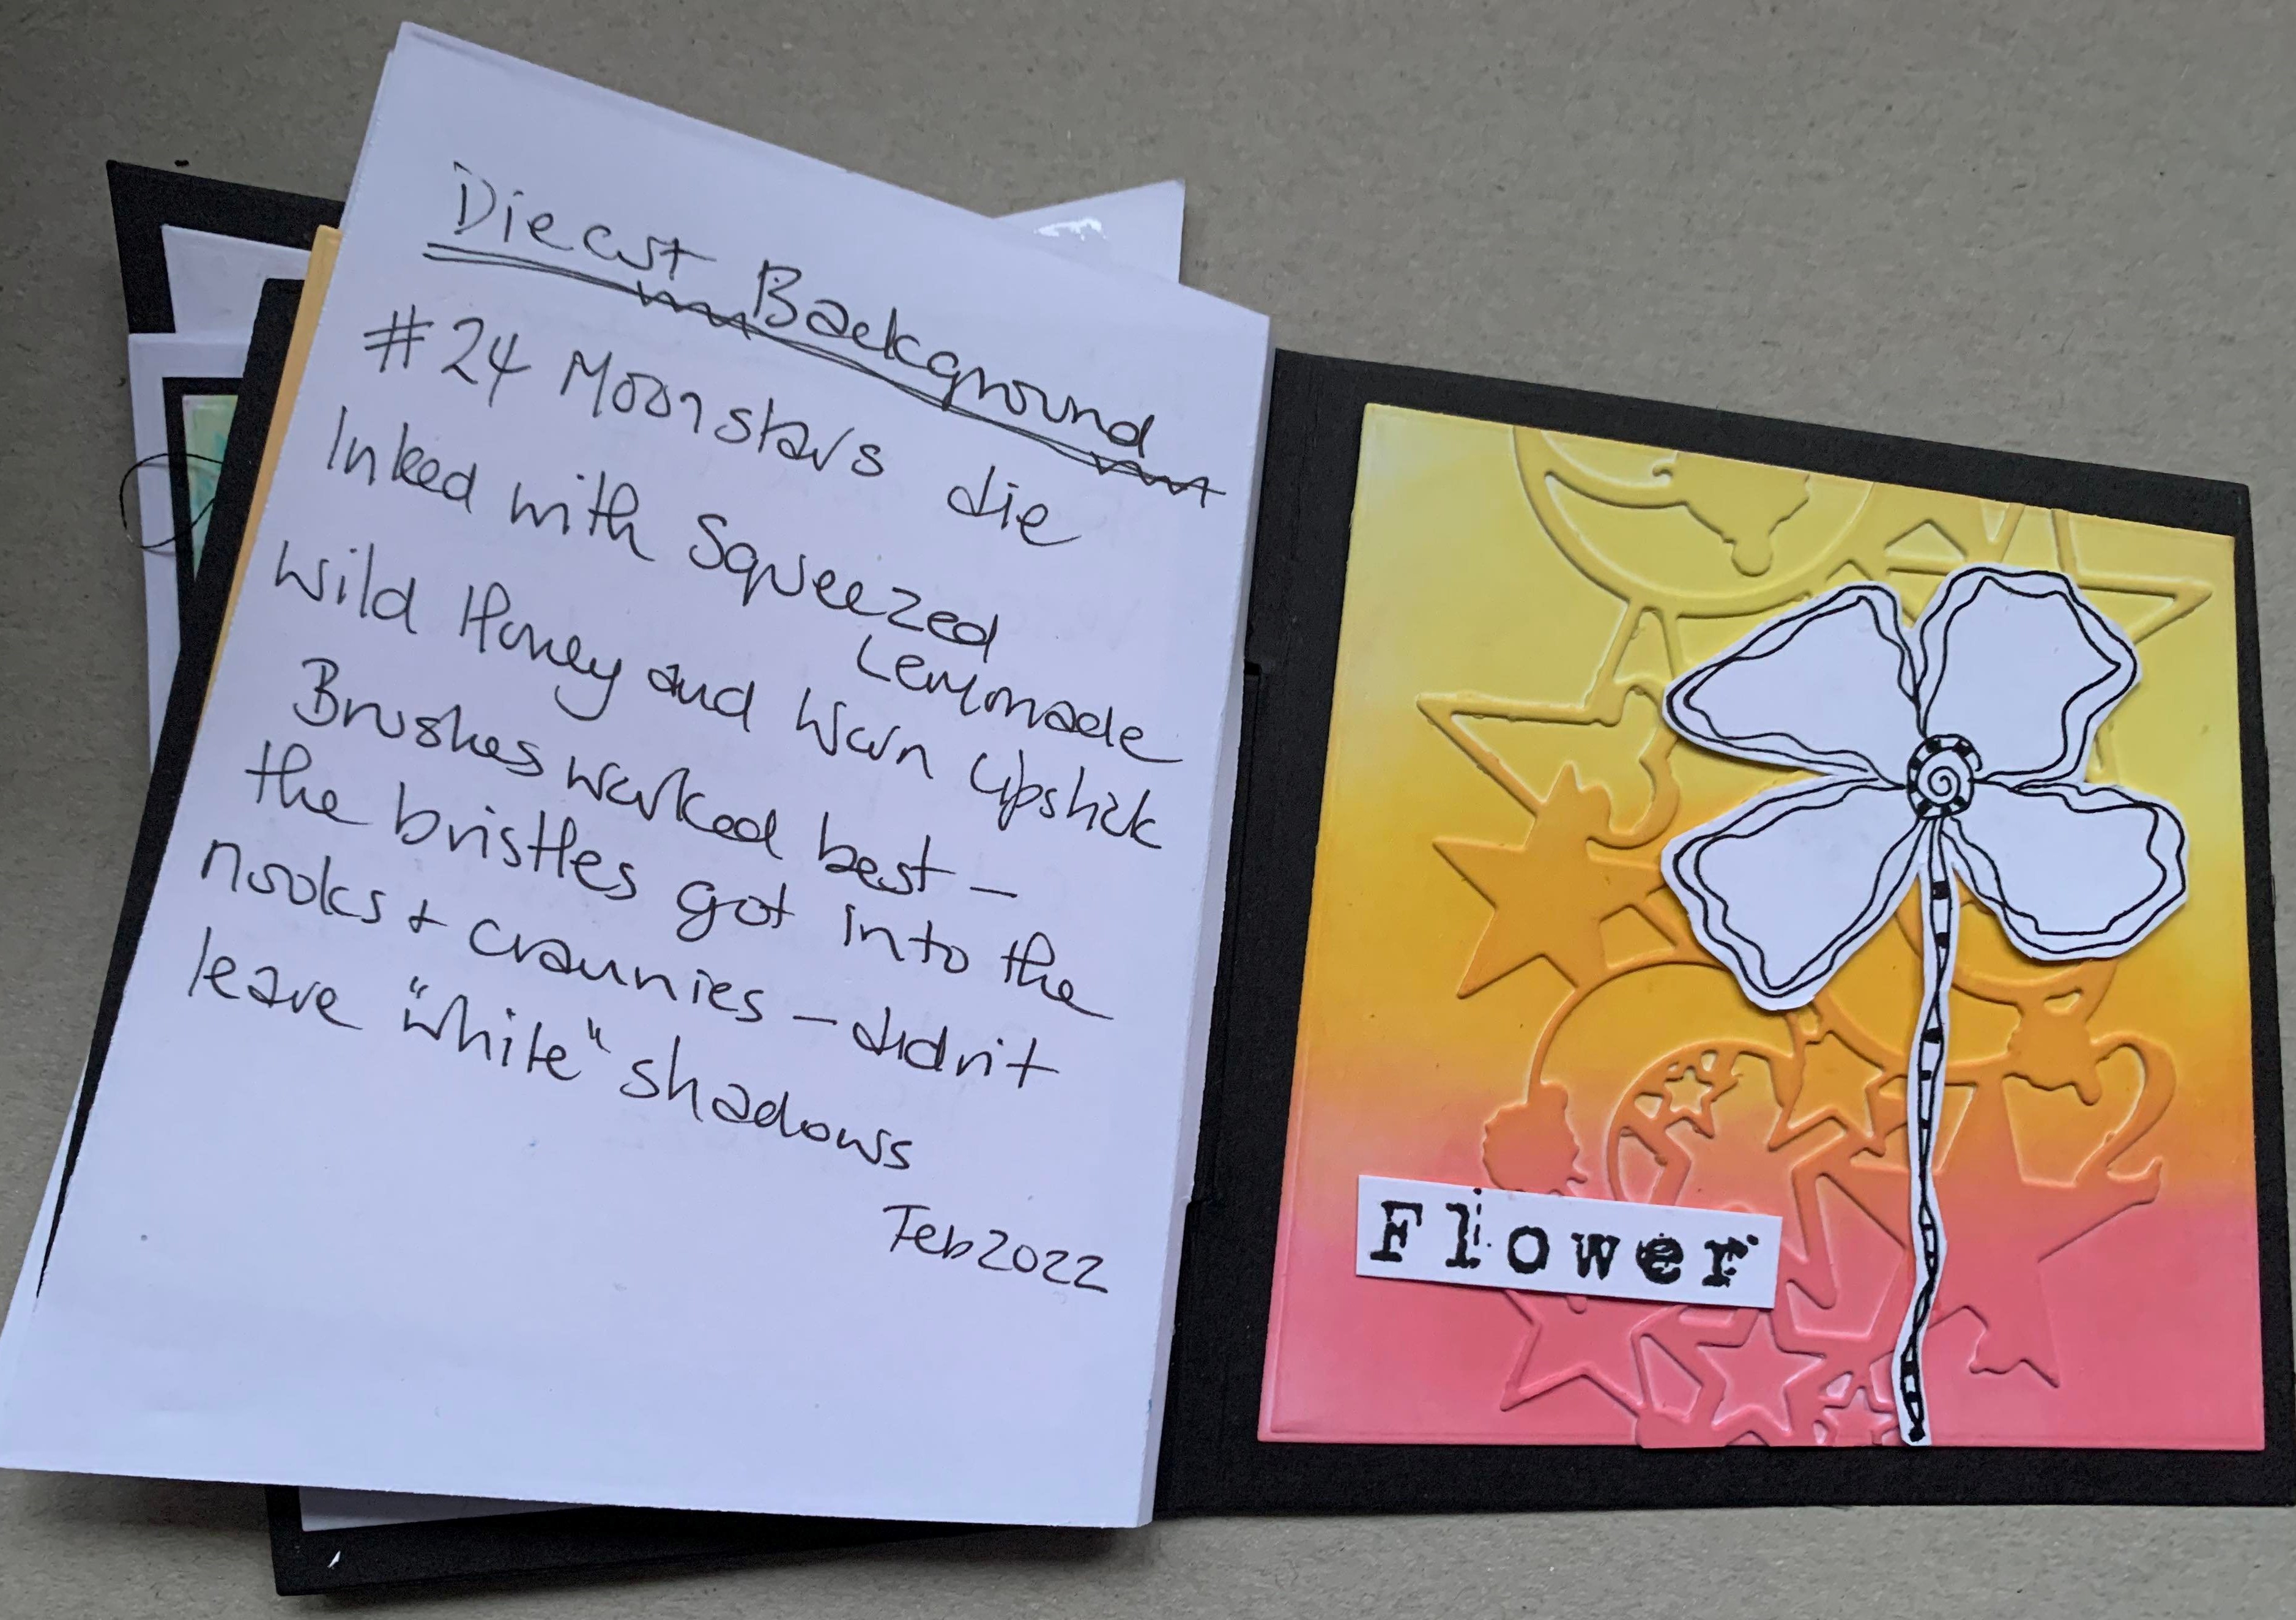 Diecut Background
#24 Moonstars die
Inked with Squeezed
Lemonade
Wild Honey and Worn Lipstick
Brushes worked best –
the bristles got into the
nooks + crannies – didn't
leave "white" shadows
Feb 2022
Flower